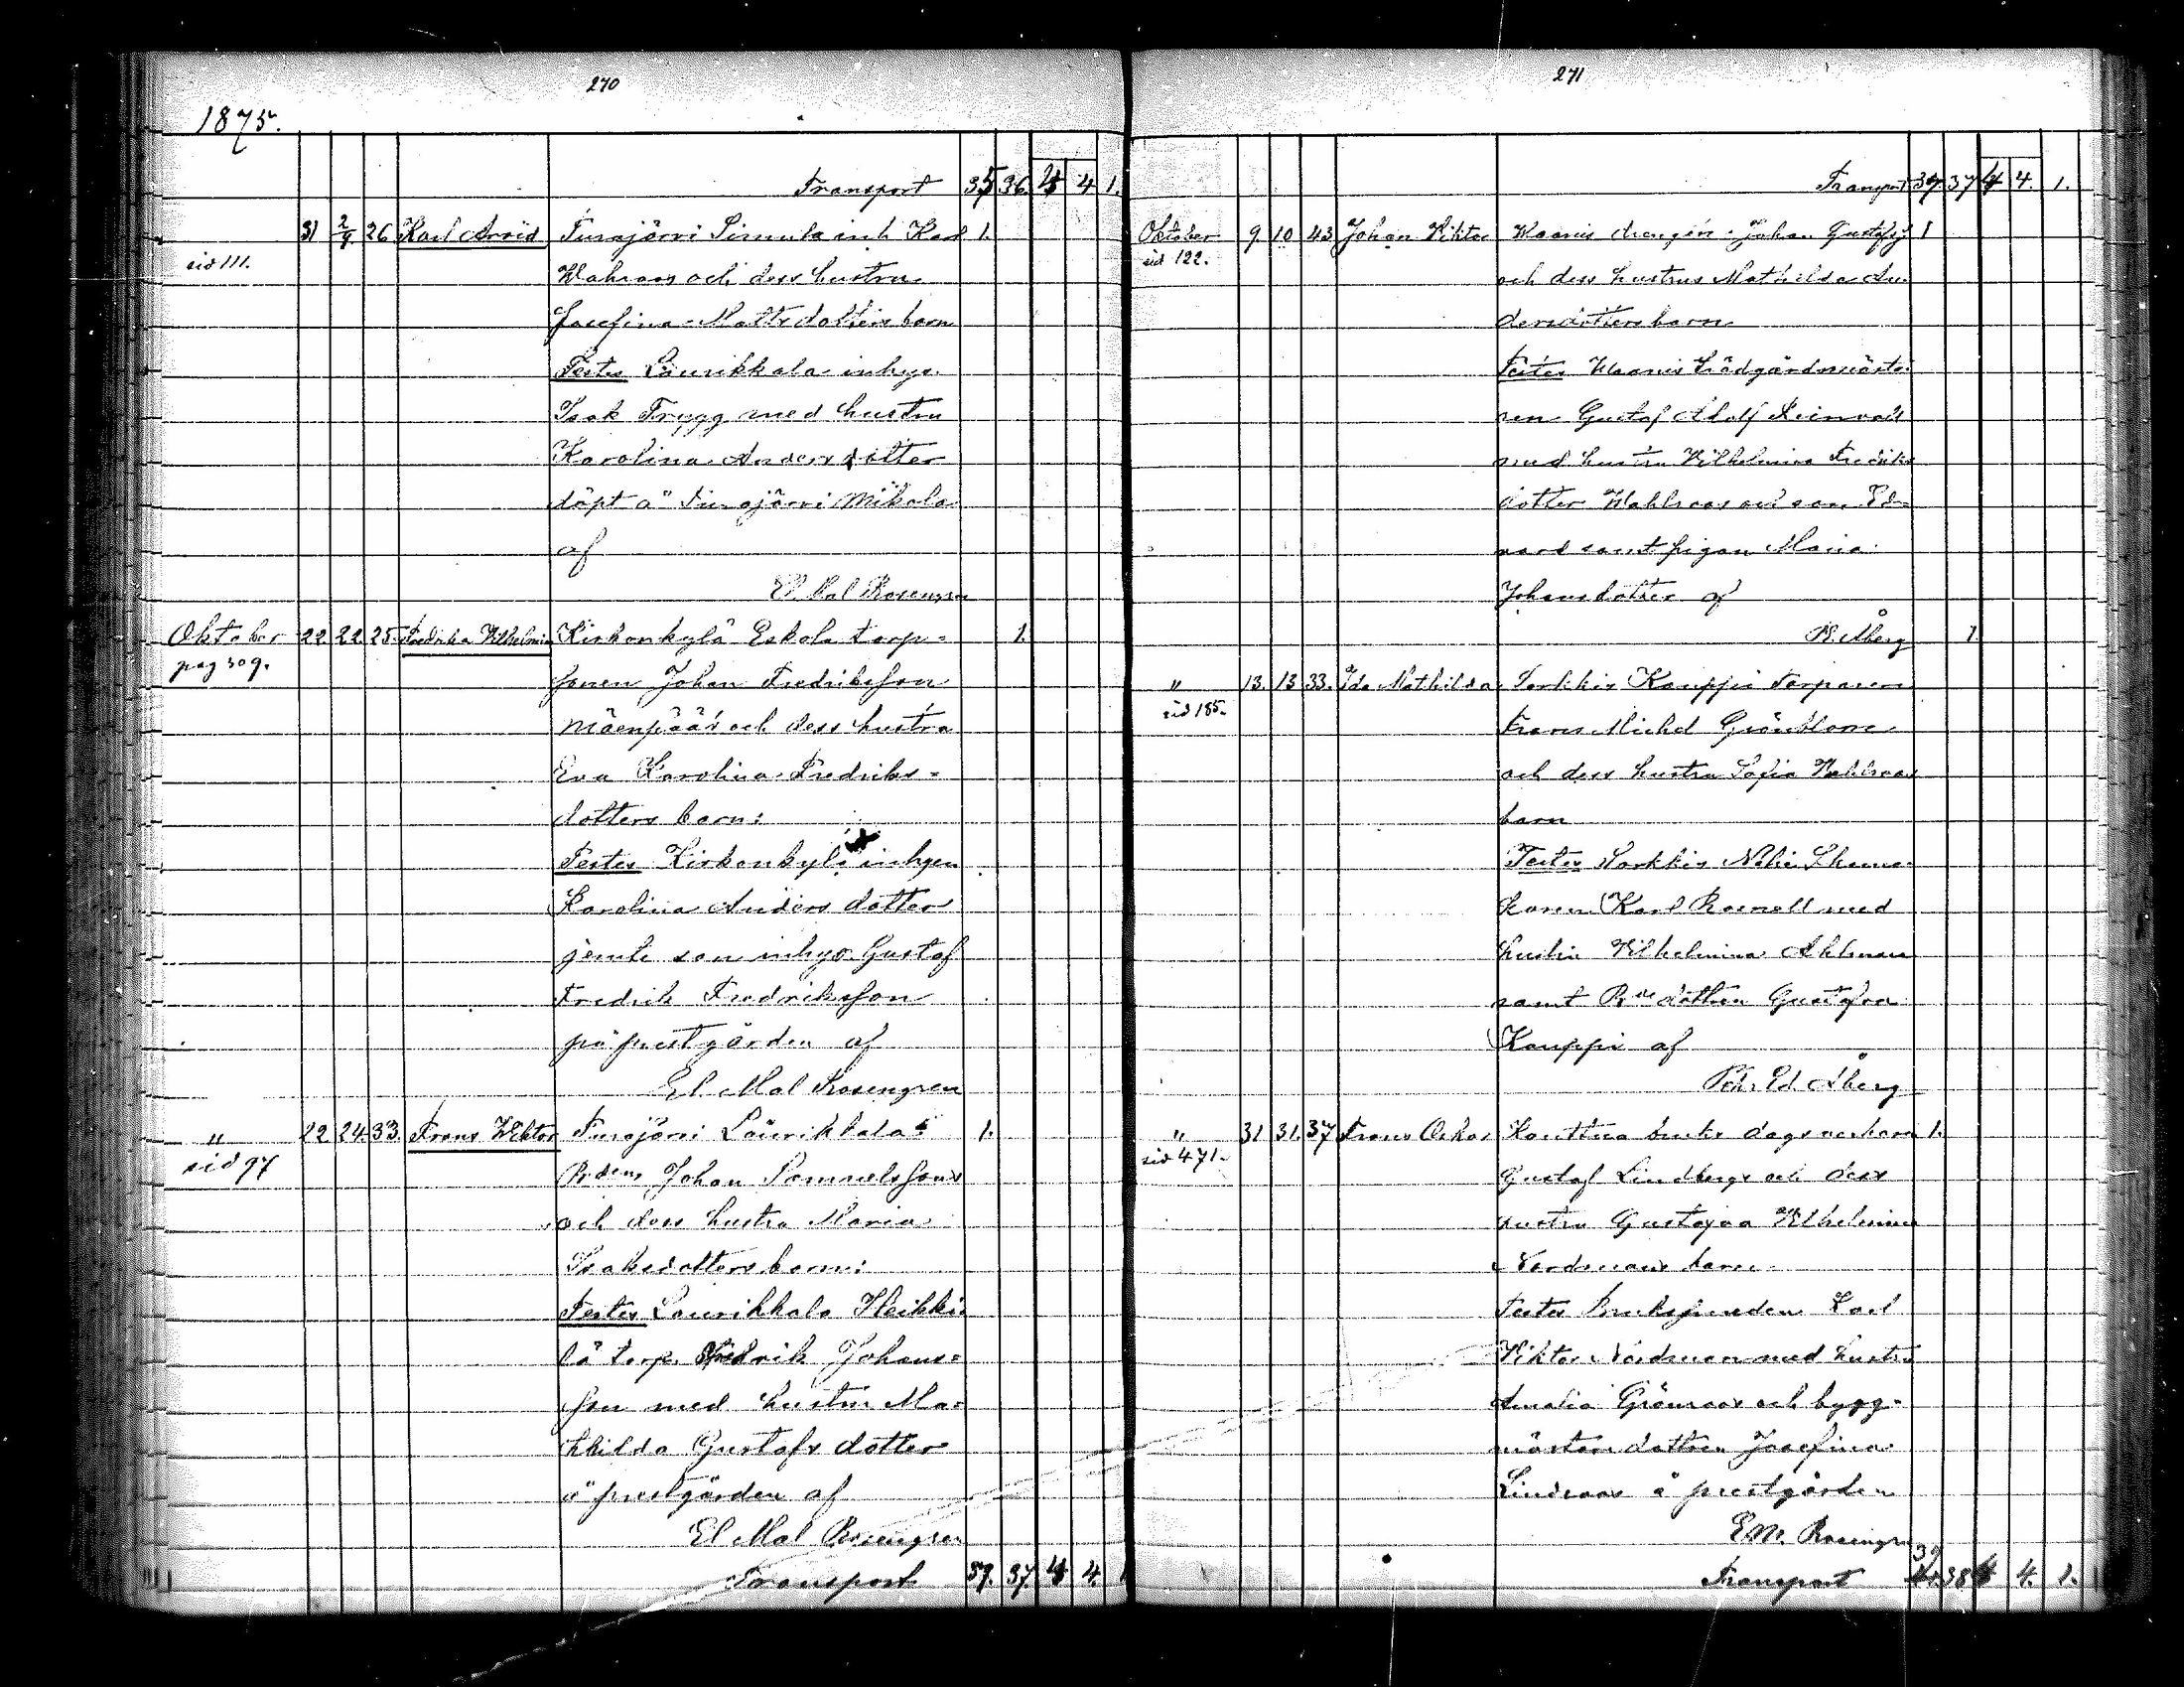 270
1875.
Transport 35 36. 4 4 1.
31 2/9 26 Karl Arvid Turajärvi Simula inh Karl 1.
sid 111.
Wahlroos och dess hustru
Josefina Mattsdotters barn
Testes Laurikkala inhys.
Isak Trygg med hustru
Karolina Andersdotter
döpt å Turajärvi Mikola
af
El. Mal Rosengren
Oktober 22 22 25. Fredrika Vilhelmina Kirkonkylä Eskola torp= 1.
pag 309.
paren Johan Fredriksson
Mäenpää's och dess hustru
Eva Karolina Fredriks=
dotters barn:
Testes Kirkonkylä inhysn
Karolina Anders dotter
jemte son inhys. Gustaf
Fredrik Fredriksson
på prestgården af
El. Mal Rosengren
" 22 24. 33. Frans Viktor Turajärvi Laurikkala 1.
sid 97
Bdens Johan Samuelssons
och dess hustru Maria
Isaksdotters barn:
Testes Laurikkala Heikki=
lä torp. Fredrik Johans=
son med hustru Ma=
thilda Gustafs dotter
å prestgården af
El Mal Rosengren
Transport 37. 37. 4 4. 1
271
Transport 37 37 4 4. 1.
Oktober 9. 10 43 Johan Viktor Waanis drengen Johan Gustafss 1
sid 122.
och dess hustrus Mathilda An=
dersdotters barn
Testes Waanis Trädgårdsmästa=
ren Gustaf Adolf
med hustru Vilhelmina Fredriks
dotter Wahlroos och son Ed=
vard samt pigan Maria
Johansdotter af
Åberg 1.
" 13. 13 33. Ida Mathilda Sorkkis Kauppi torparen
sid 185.
Frans Michel Grönblom
och dess hustru Sofia Wahlroos
barn
Testes Sorkkis Skoma=
karen Karl Rosnell med
hustru Vilhelmina Ahlman
samt Bde dottern Gustafva
Kauppi af
Ed. Åberg
" 31 31. 37 Frans Oskar Kauttua bruks dagsverkaren 1.
sid 471.
Gustaf Lindbergs och dess
hustru Gustafva Vilhelmina
Nordmans barn
Testes Brukssmeden Karl
Viktor Nordman med hustru
Amalia Grönroos och bygg=
mästare dottren Josefina
Lindroos å prestgården
E M. Rosengren
39
Transport 38 4 4. 1.